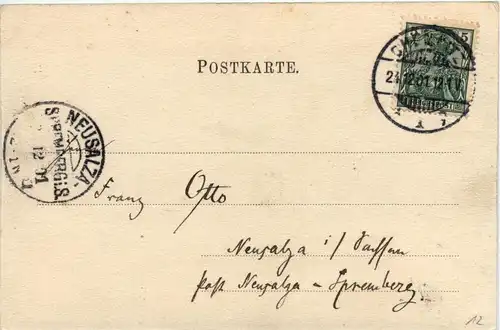 5
POSTKARTE.
24.12.01.12-1N
NEUSALZA-
SPREMBERG i. S.
12 01
Franz Otto
Neusalza i/ Sachsen
Post Neusalza u Spremberg
12